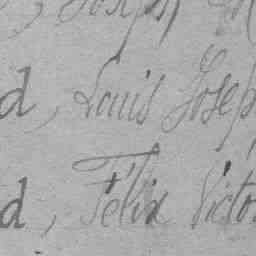 , Joseph
d, Louis Josep
d, Félix Victo